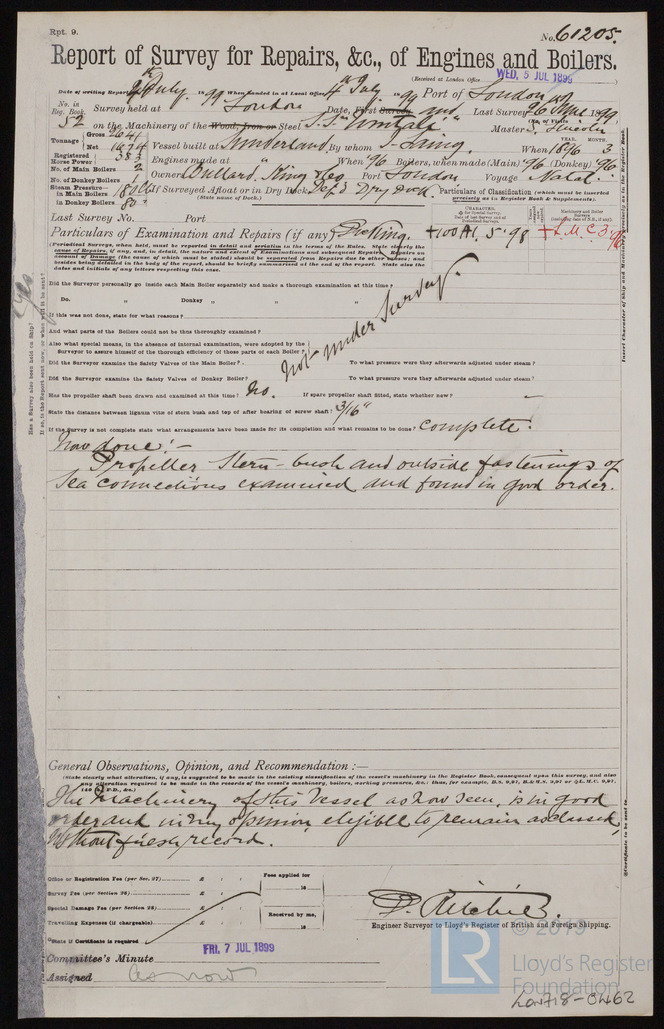 Rpt. 9.
No. 61205.
Report of Survey for Repairs, &c., of Engines and Boilers.
(Received at London Office WED. 5 JUL 1899
Date of writing Report July 1899 When handed in at Local Office 4th July 1899 Port of London
No. in Reg. Book. Survey held at London Date, First Survey and Last Survey 26 June 1899
52 on the Machinery of the Wood, Iron or Steel S.S. "Umtali" Master
Tonnage Gross 2641
Net 1674 Vessel built at Sunderland By whom J. Laing. When 1896 3
Registered Horse Power 383 Engines made at " When '96 Boilers, when made (Main) '96 (Donkey) '96
No. of Main Boilers
No. of Donkey Boilers Owners Bullard, King & Co Port London Voyage Natal.
Steam Pressure—
in Main Boilers 180 lbs If Surveyed Afloat or in Dry Dock Dry Dock.
in Donkey Boilers 80 (State name of Dock.)
Particulars of Classification (which must be inserted precisely as in Register Book & Supplements).
Last Survey No. Port
Particulars of Examination and Repairs (if any) Docking. +100A1 5.98 +L.M.C. 3,96
(Periodical Surveys, when held, must be reported in detail and seriatim in the terms of the Rules. State clearly the
cause, if any, and, in detail, the nature and extent of Examinations and subsequent Repairs. Repairs on
account of Damage (the cause of which must be stated) should be separated from Repairs due to other causes; and
besides being detailed in the body of the report, should be briefly summarised at the end of the report. State also the
dates and initials of any letters respecting this case.
Did the Surveyor personally go inside each Main Boiler separately and make a thorough examination at this time?
Do. " Donkey " " "
If this was not done, state for what reasons?
And what parts of the Boilers could not be thus thoroughly examined?
Also what special means, in the absence of internal examination, were adopted by the
Surveyor to assure himself of the thorough efficiency of those parts of each Boiler?
not under Survey.
Did the Surveyor examine the Safety Valves of the Main Boiler? To what pressure were they afterwards adjusted under steam?
Did the Surveyor examine the Safety Valves of Donkey Boiler? To what pressure were they afterwards adjusted under steam?
Has the propeller shaft been drawn and examined at this time? No. If spare propeller shaft fitted, state whether new? —
State the distance between lignum vitæ of stern bush and top of after bearing of screw shaft? 3/16"
If the Survey is not complete state what arrangements have been made for its completion and what remains to be done? Complete.
Now done:—
Propeller Stern-bush and outside fastenings of
Sea connections examined and found in good order.
General Observations, Opinion, and Recommendation:—
(State clearly what alteration, if any, is suggested to be made in the existing classification of the vessel's machinery in the Register Book, consequent upon this survey, and also
any alteration required to be made in the records of the vessel's machinery, boilers, working pressures, &c.: thus, for example, B.S. 9,97, B.&M.S. 9,97 or L.M.C. 9,97,
The Machinery of this Vessel as now seen, is in good
order and in my opinion, eligible to remain as classed,
without fresh record.
Office or Registration Fee (per Sec. 27) £ : : Fees applied for
Survey Fee (per Section 28) £ : : 18
Special Damage Fee (per Section 28) £ : : Received by me,
Travelling Expenses (if chargeable) £ : : 18
*State if Certificate is required
P. Ritchie.
Engineer Surveyor to Lloyd's Register of British and Foreign Shipping.
Committee's Minute FRI. 7 JUL 1899
Assigned as now
LR © 2019
Lloyd's Register
Foundation
LON718-0462